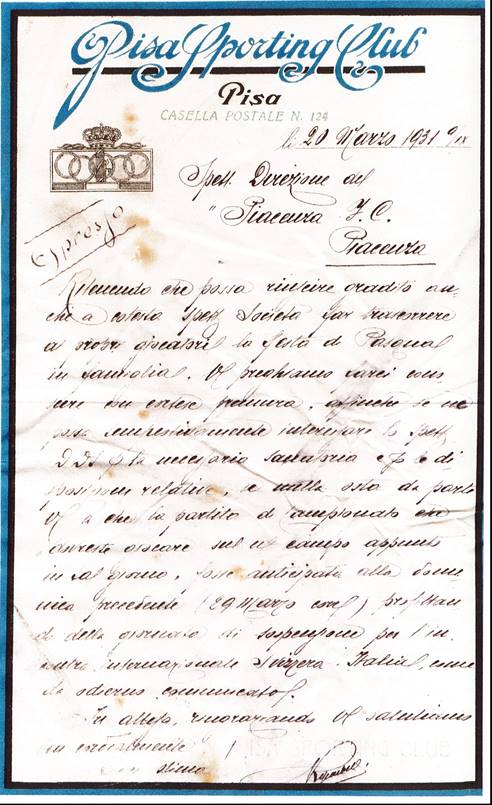 Pisa Sporting Club
Pisa
CASELLA POSTALE N. 124
li 20 Marzo 1931 IX
Spett. Direzione del
"Piacenza F. C.
Piacenza
Espresso
Ritenendo che possa riuscire gradito an-
che a codesta Spett. Società far trascorrere
ai propri giocatori la festa di Pasqua
in famiglia, Vi preghiamo farci
con cortese premura, affinché se ne
possa tempestivamente interessare lo Spett.
D.D.S. p la necessaria e p le di
sposizioni relative, se nulla osta da parte
Vs a che la partita di campionato
dovreste giocare sul ns campo appunto
in tal giorno, sia anticipata alla dome
nica precedente (29 Marzo corr) profittan
do della giornata di sospensione per l'in
contro internazionale Svizzera Italia, come
da odierno comunicato.
In attesa, ringraziando Vi salutiamo
cordialmente
con stima
PISA SPORTING CLUB